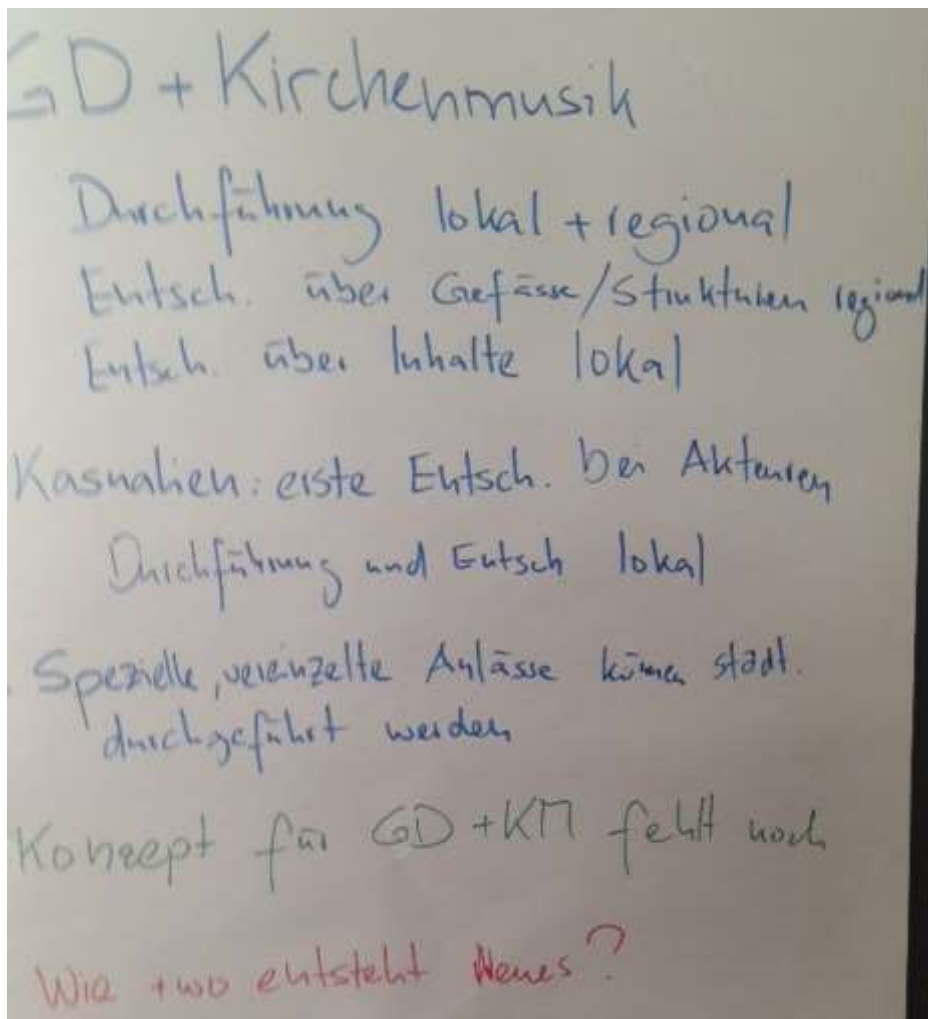 GD + Kirchenmusik
Durchführung lokal + regional
Entsch. über Gefässe/Strukturen regional
Entsch. über Inhalte lokal
Kasualien: erste Entsch. bei Akteuren
Durchführung und Entsch lokal
Spezielle, vereinzelte Anlässe können städt.
durchgeführt werden
Konzept für GD + KM fehlt noch
Wie + wo entsteht Neues?